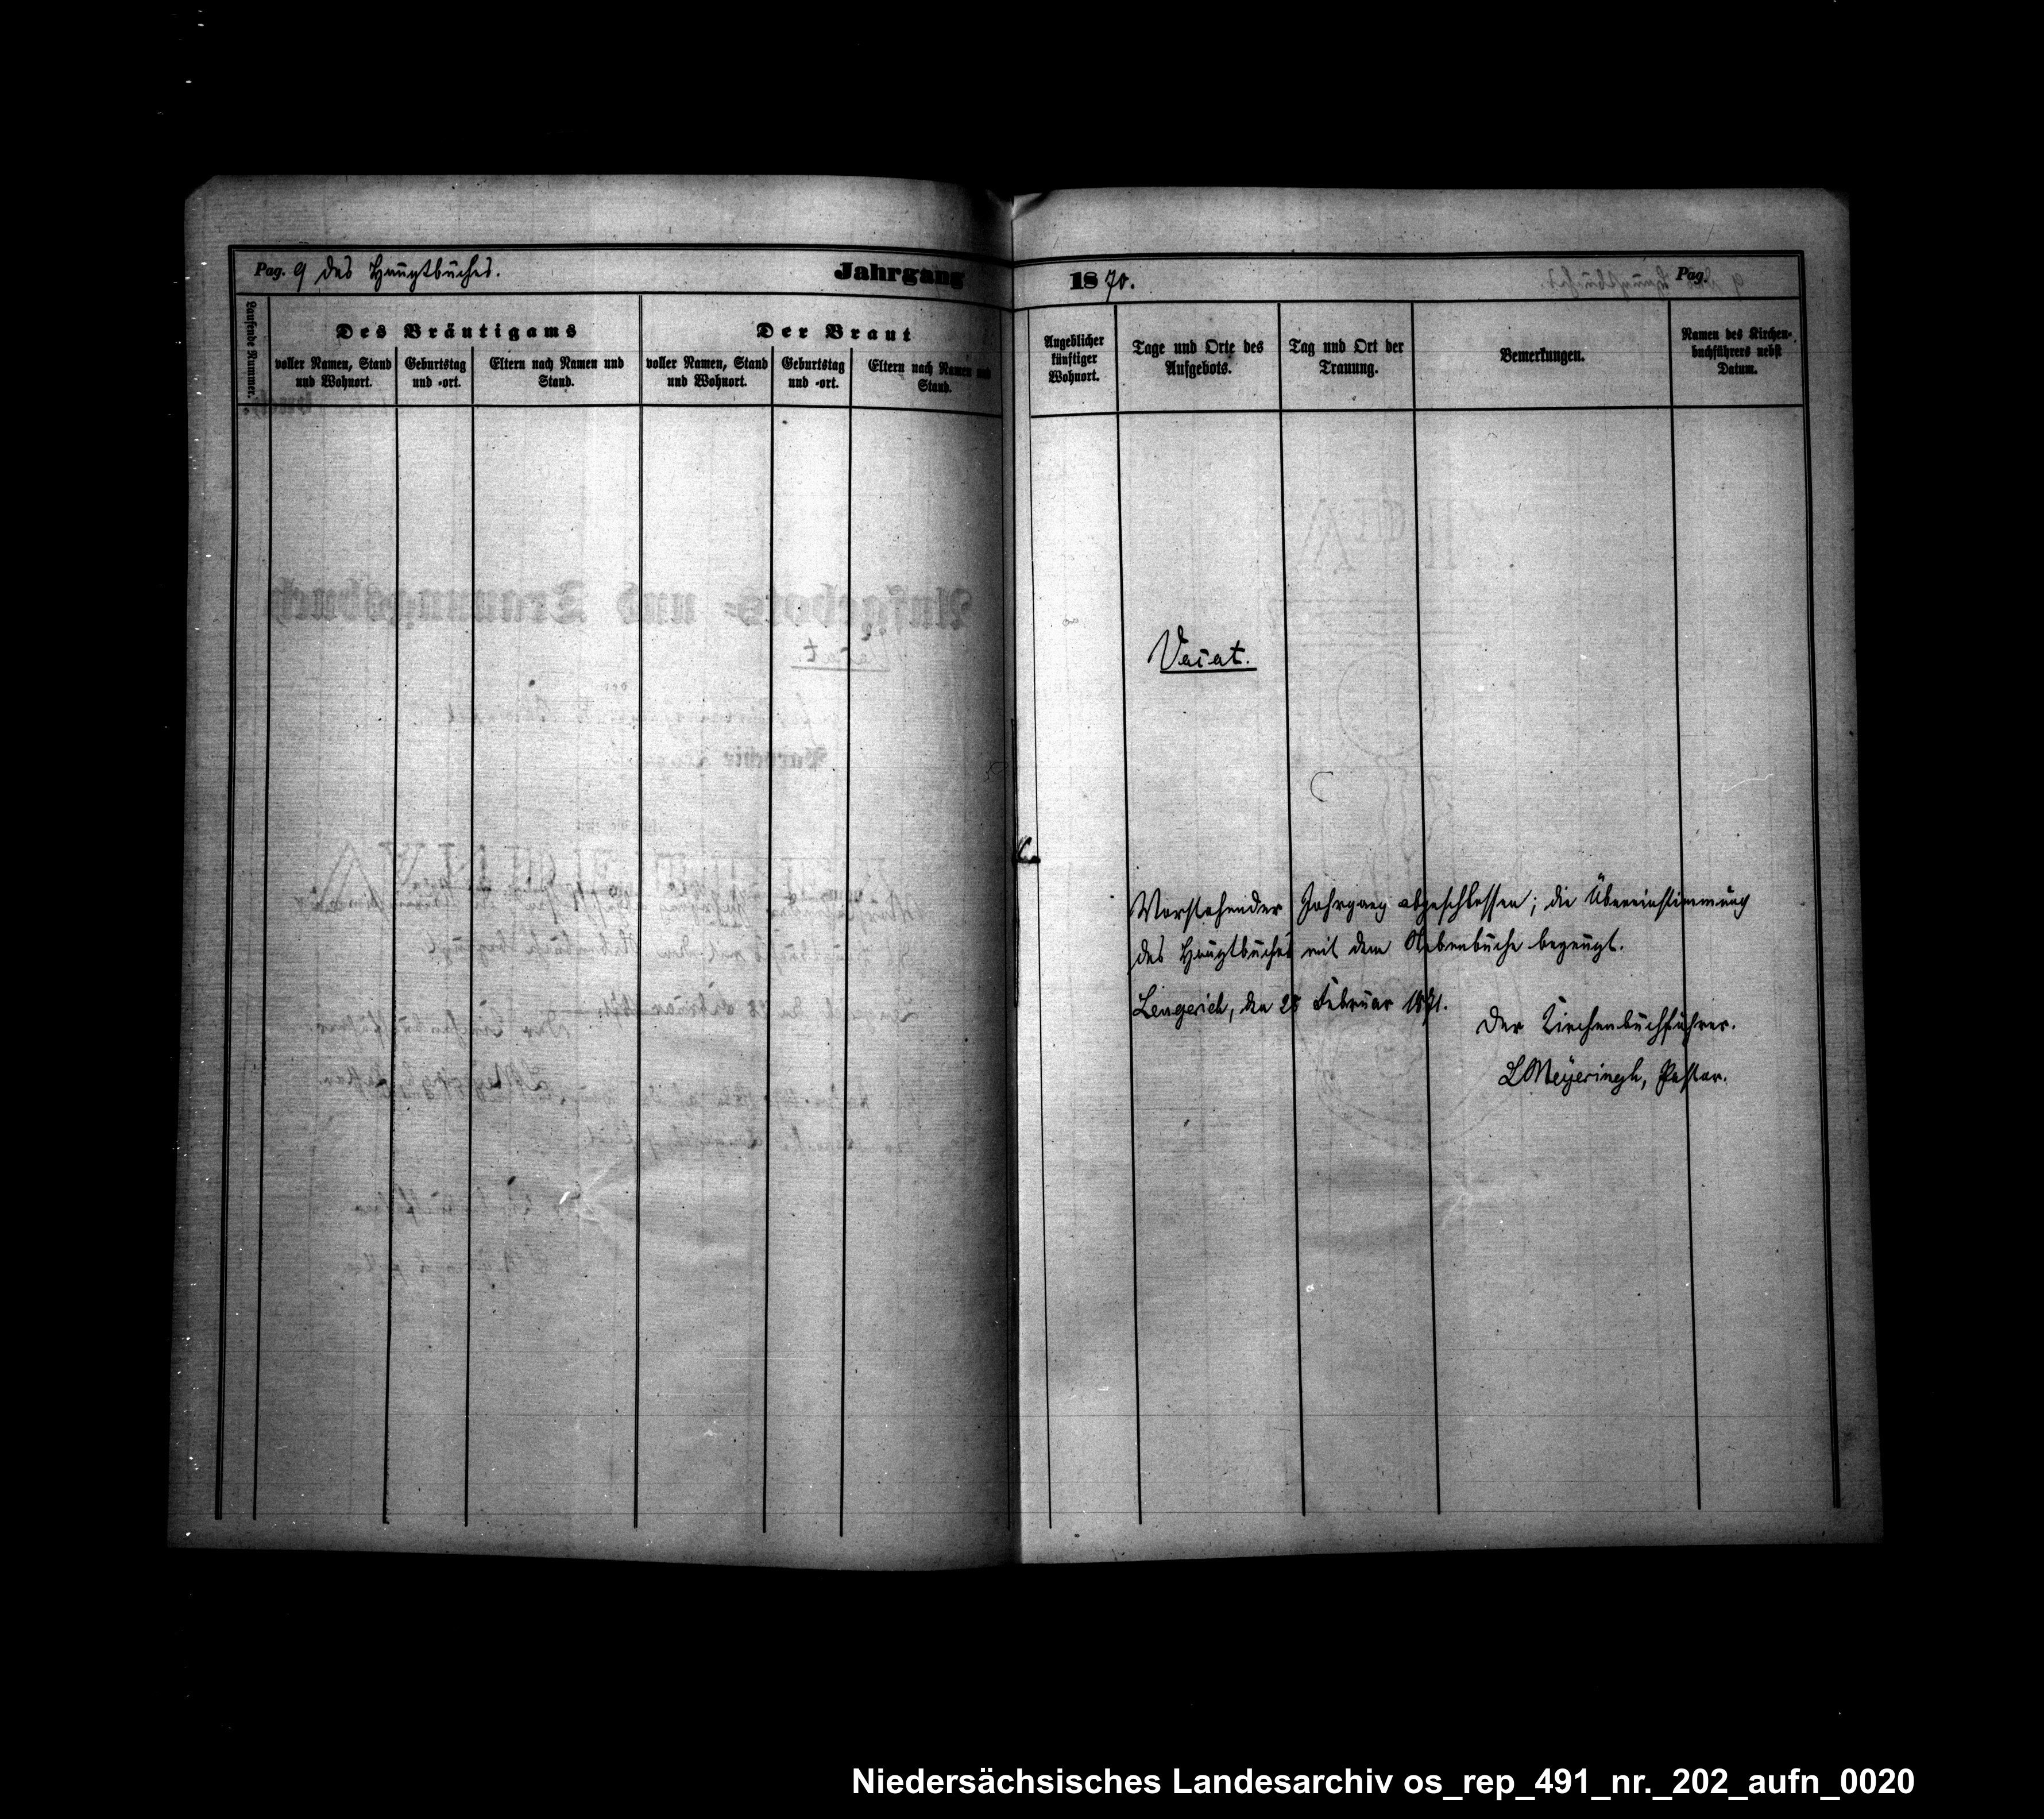 Pag. 9 des Hauptbuches.
Jahrgang 1870.
Pag.
Laufende Nummer.
Des Bräutigams
voller Namen, Stand
und Wohnort.
Geburtstag
und -ort.
Eltern nach Namen und
Stand.
Der Braut
voller Namen, Stand
und Wohnort.
Geburtstag
und -ort.
Eltern nach Namen und
Stand.
Angeblicher
künftiger
Wohnort.
Tage und Orte des
Aufgebots.
Tag und Ort der
Trauung.
Bemerkungen.
Namen des Kirchen-
buchführers nebst
Datum.
Vacat.
Vorstehender Jahrgang abgeschlossen; die Übereinstimmung
des Hauptbuches mit dem Nebenbuche bezeugt.
Lengerich, den 28 Februar 1871.
Der Kirchenbuchführer.
L Meyeringh, Pastor.
Niedersächsisches Landesarchiv os_rep_491_nr._202_aufn_0020